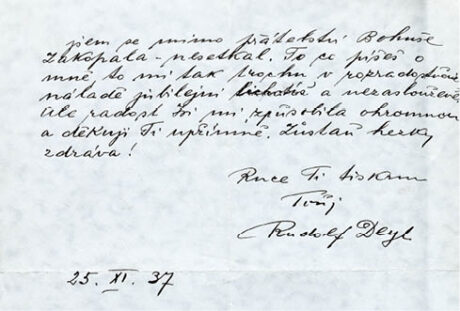 jsem se mimo přátelství Bohuše
Zakopala - nesetkal. To co píšeš o
mně to mi tak trochu v rozradostněné
náladě jubilejní lichotíš a nezaslouženě,
ale radost Jsi mi způsobila ohromnou
a děkuji Ti upřímně. Zůstaň hezky
zdráva!
Ruce Ti tisknu
Tvůj
Rudolf Deyl
25. XI. 37